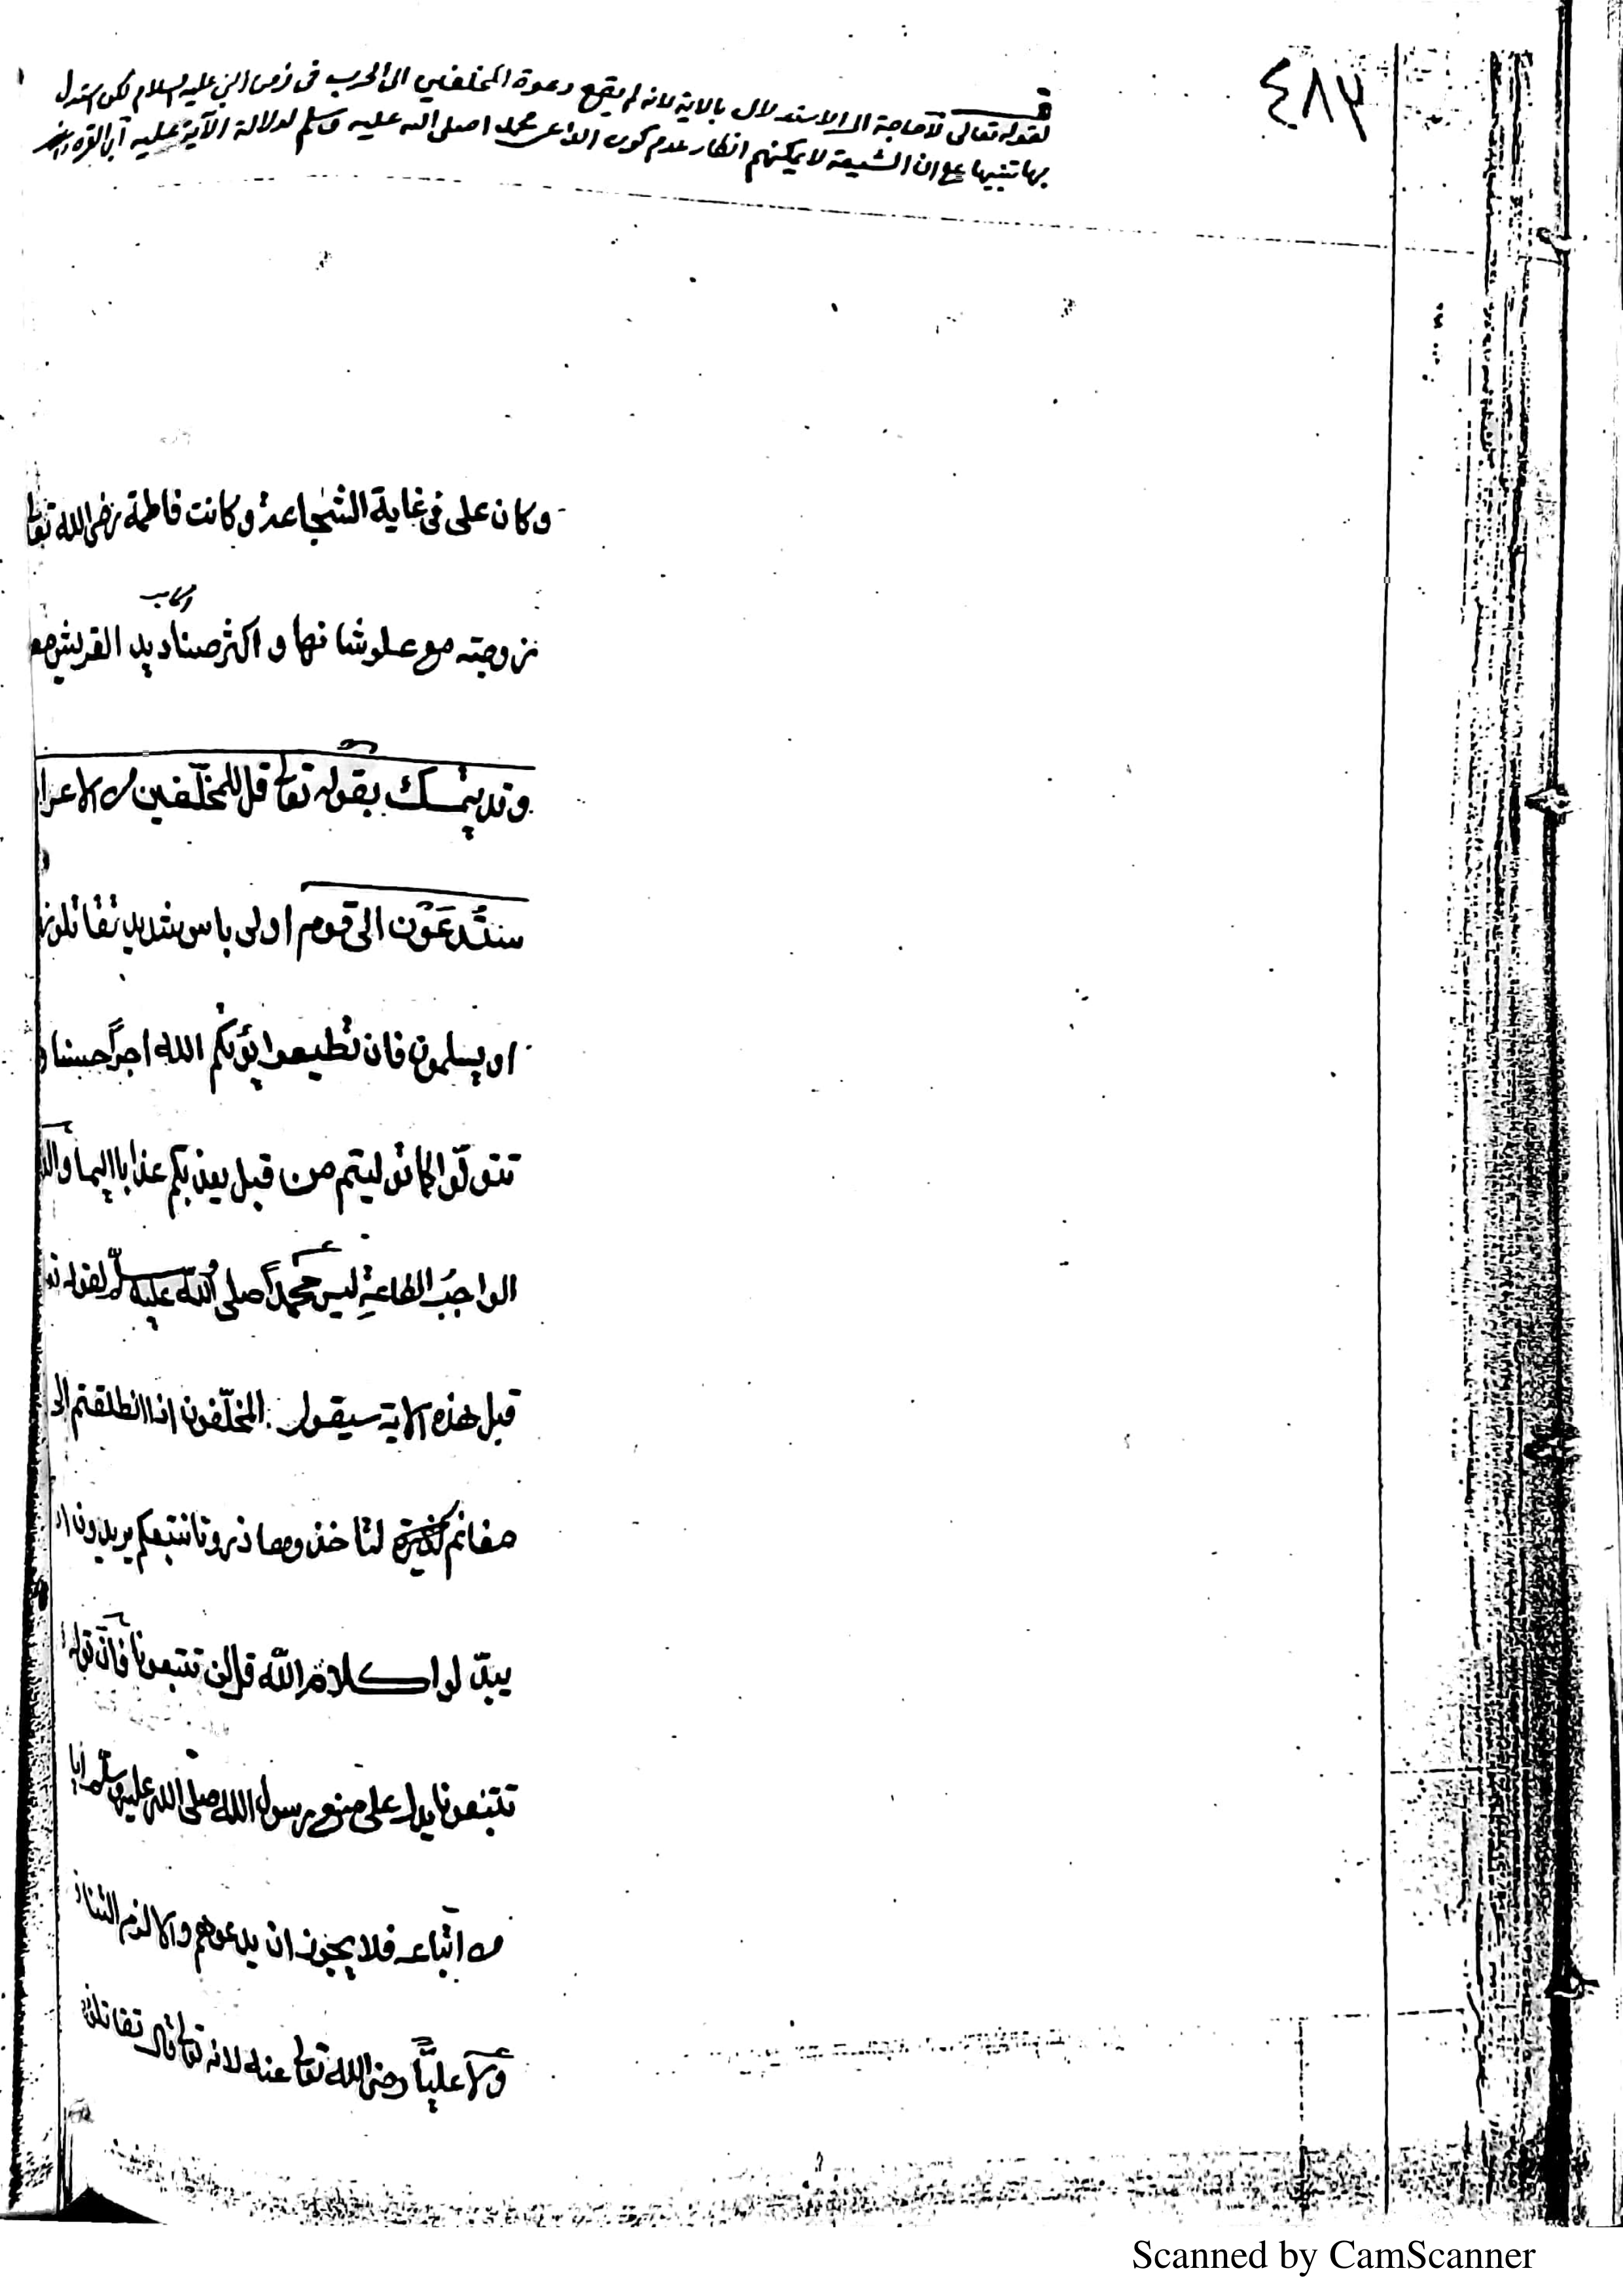 ٤٨٣
قـــ
لقوله تعالى لا حاجة الى الاستدلال بالاية لانه لم يقع دعوة المخلفين الى الحرب فى زمن النبى عليه السلام لكن استدل
بها تنبيها على ان الشيعة لا يمكنهم انكار عدم كون الداعى محمدا صلى الله عليه وسلم لدلالة الآية عليه
وكان على فى غاية الشجاعة وكانت فاطمة رضى الله تعا
زوجته مع علو شانها و اكثر صناديد القريش مع
وقد يتمسك بقوله تعالى قل للمخلّفين من الاعرا
ستُدعَوْن الى قوم اولى باس شديد تقاتلونه
او يسلمون فان تطيعوا يؤتكم الله اجراً حسنا و
تتولّوا كما توليتم من قبل يعذبكم عذابا اليما
الواجبُ الطاعةِ ليس محمداً صلى الله عليه وسلم لقوله تعا
قبل هذه الاية سيقول المخلّفون اذا انطلقتم الى
مغانم لتاخذوها ذرونا نتبعكم يريدون ان
يبدّلوا كلام الله قل لن تتبعونا فان قوله
تتبعونا يدل على منع رسول الله صلى الله عليه وسلم ايا
من اتباعه فلا يجوز ان يدعوهم والا لزم التنا
ولا عليّاً رضى الله تعالى عنه لانه تعالى قال تقاتلو
Scanned by CamScanner